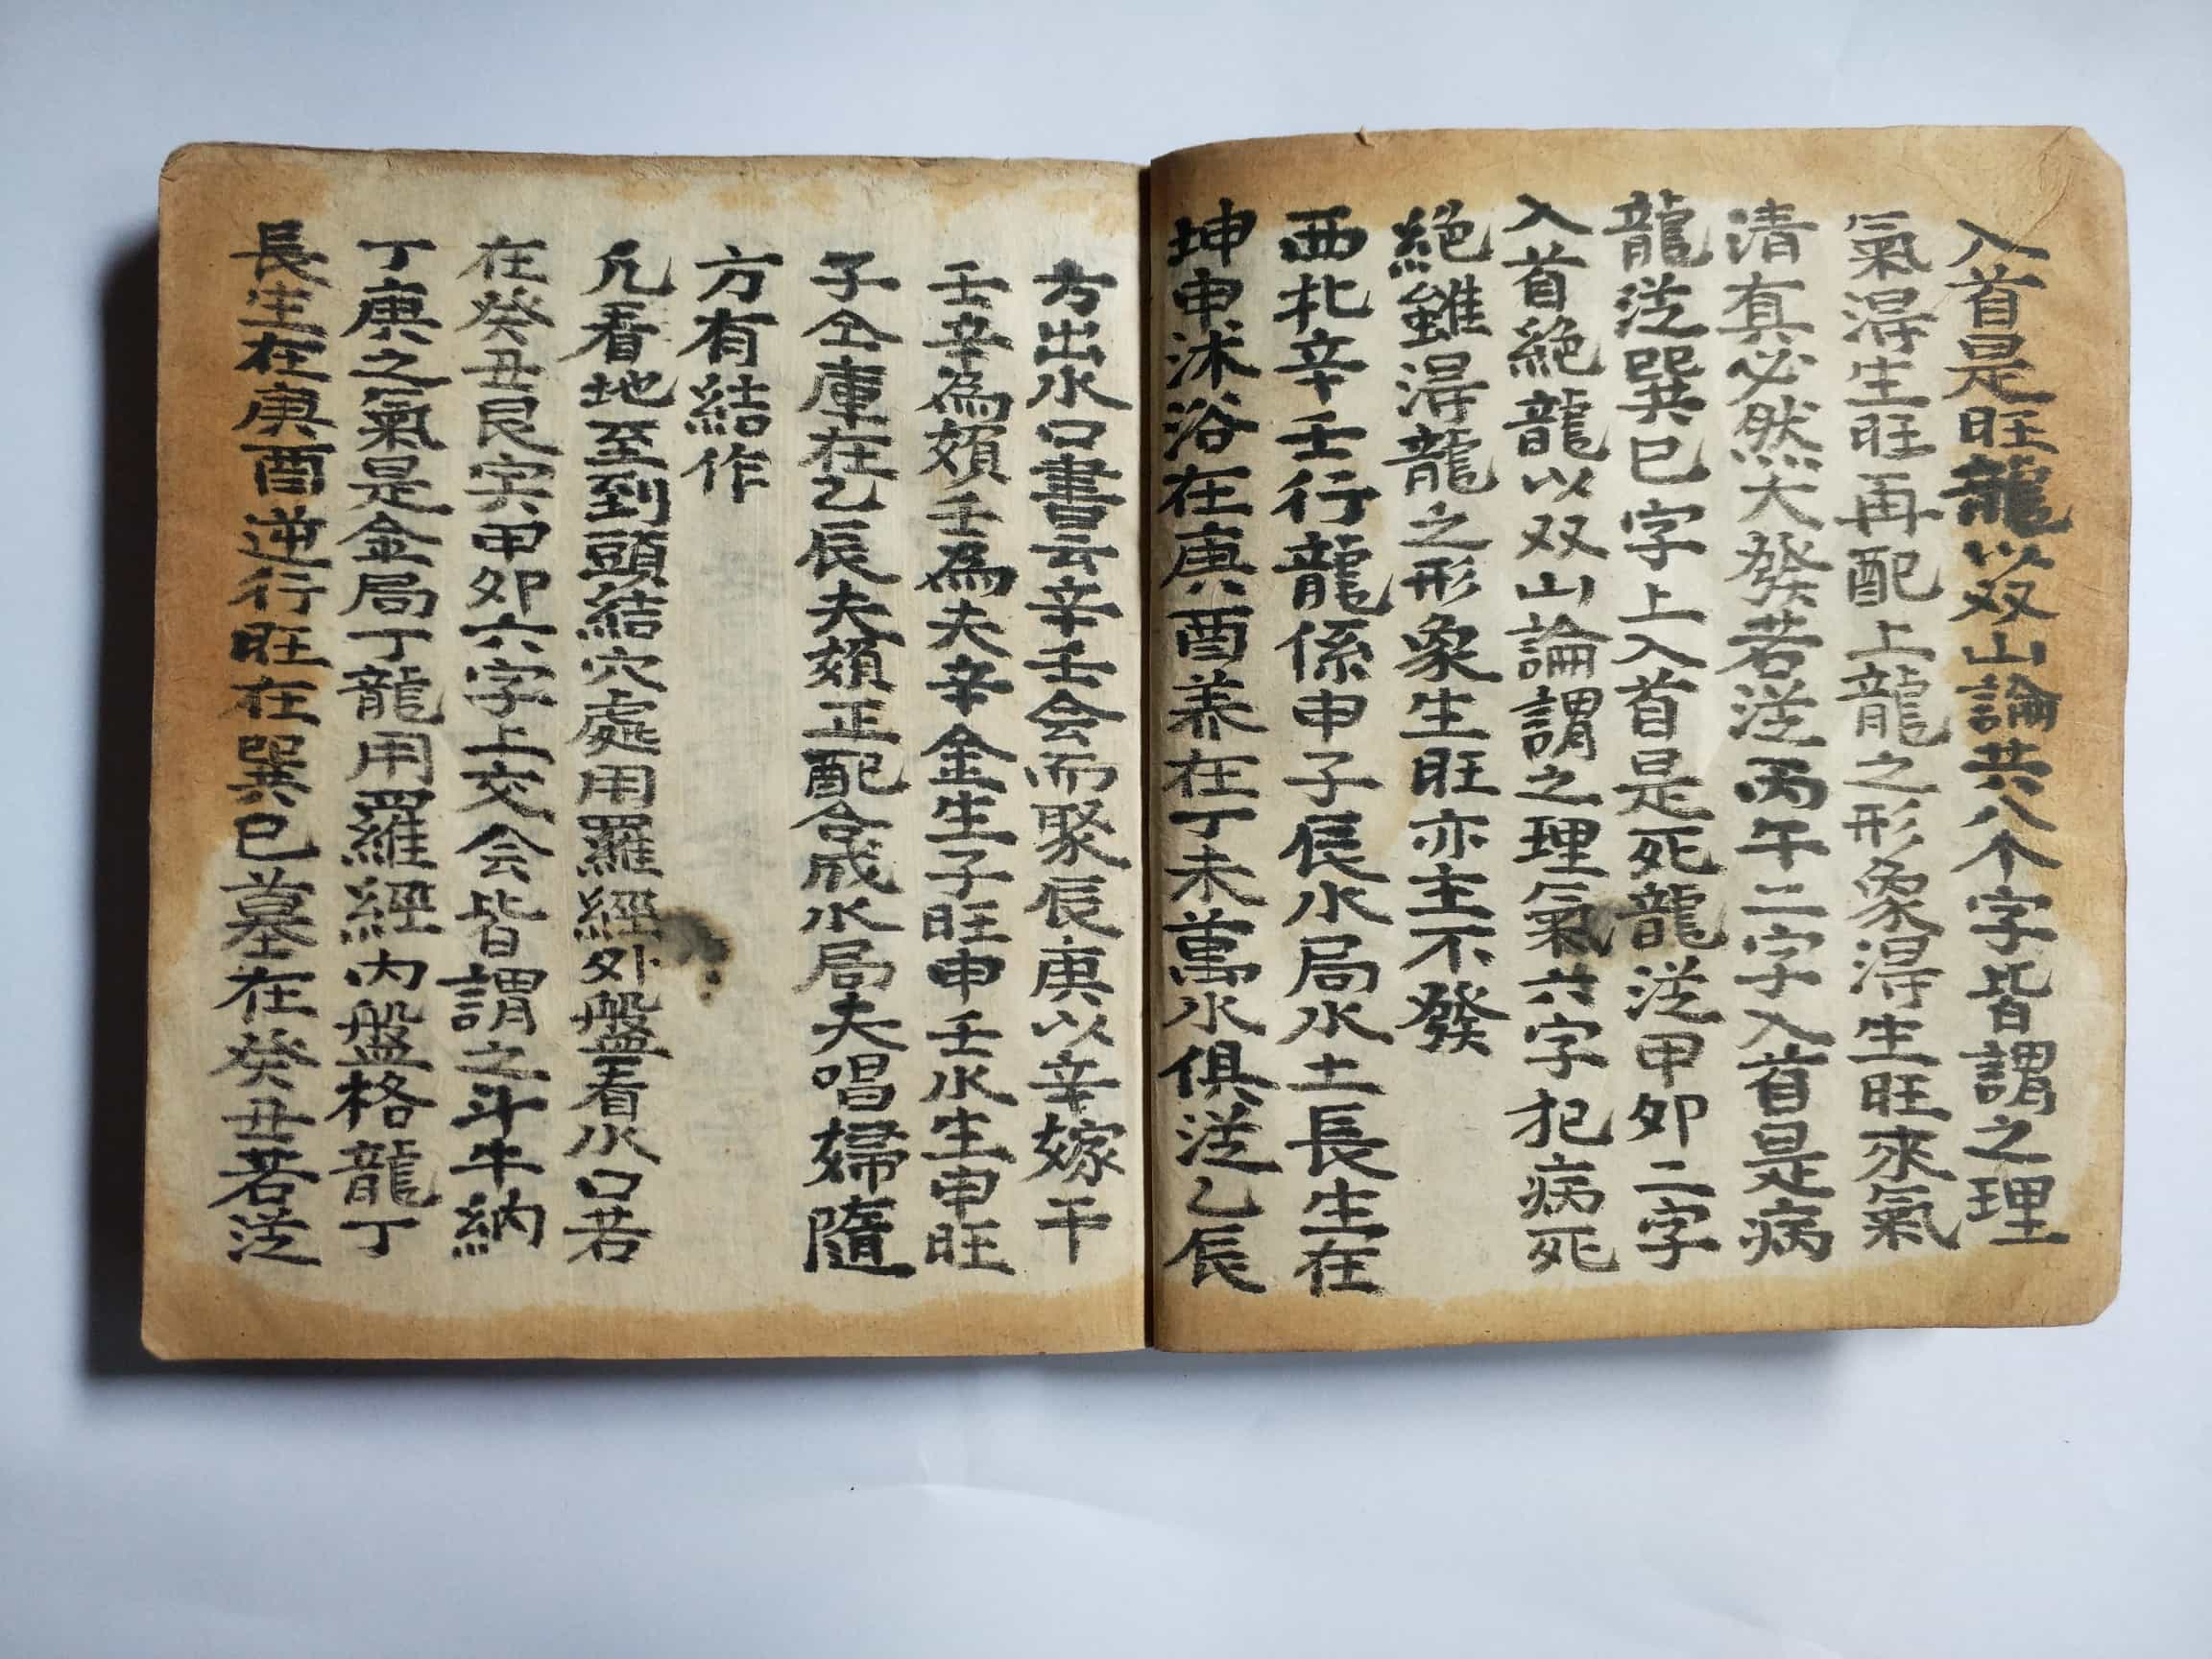 入首是旺龍以双山論共八个字皆謂之理
氣淂生旺再配上龍之形象淂生旺來氣
清真必然大發若从丙午二字入首是病
龍从巽巳字上入首是死龍从甲卯二字
入首絶龍以双山論謂之理氣六字犯病死
絶雖淂龍之形象生旺亦主不發
西北辛壬行龍係申子辰水局水土長生在
坤申沐浴在庚酉养在丁未萬水俱从乙辰
方出水口書云辛壬会而聚辰庚以辛嫁干
壬辛為䫂壬為夫辛金生子旺申壬水生申旺
子仝庫在乙辰夫䫂正配合成水局夫唱婦隨
方有結作
凢看地至到頭結穴處用羅經外盤看水口若
在癸丑艮寅甲卯六字上交会皆謂之斗牛納
丁庚之氣是金局丁龍用羅經内盤格龍丁
長生在庚酉逆行旺在巽巳墓在癸丑若从